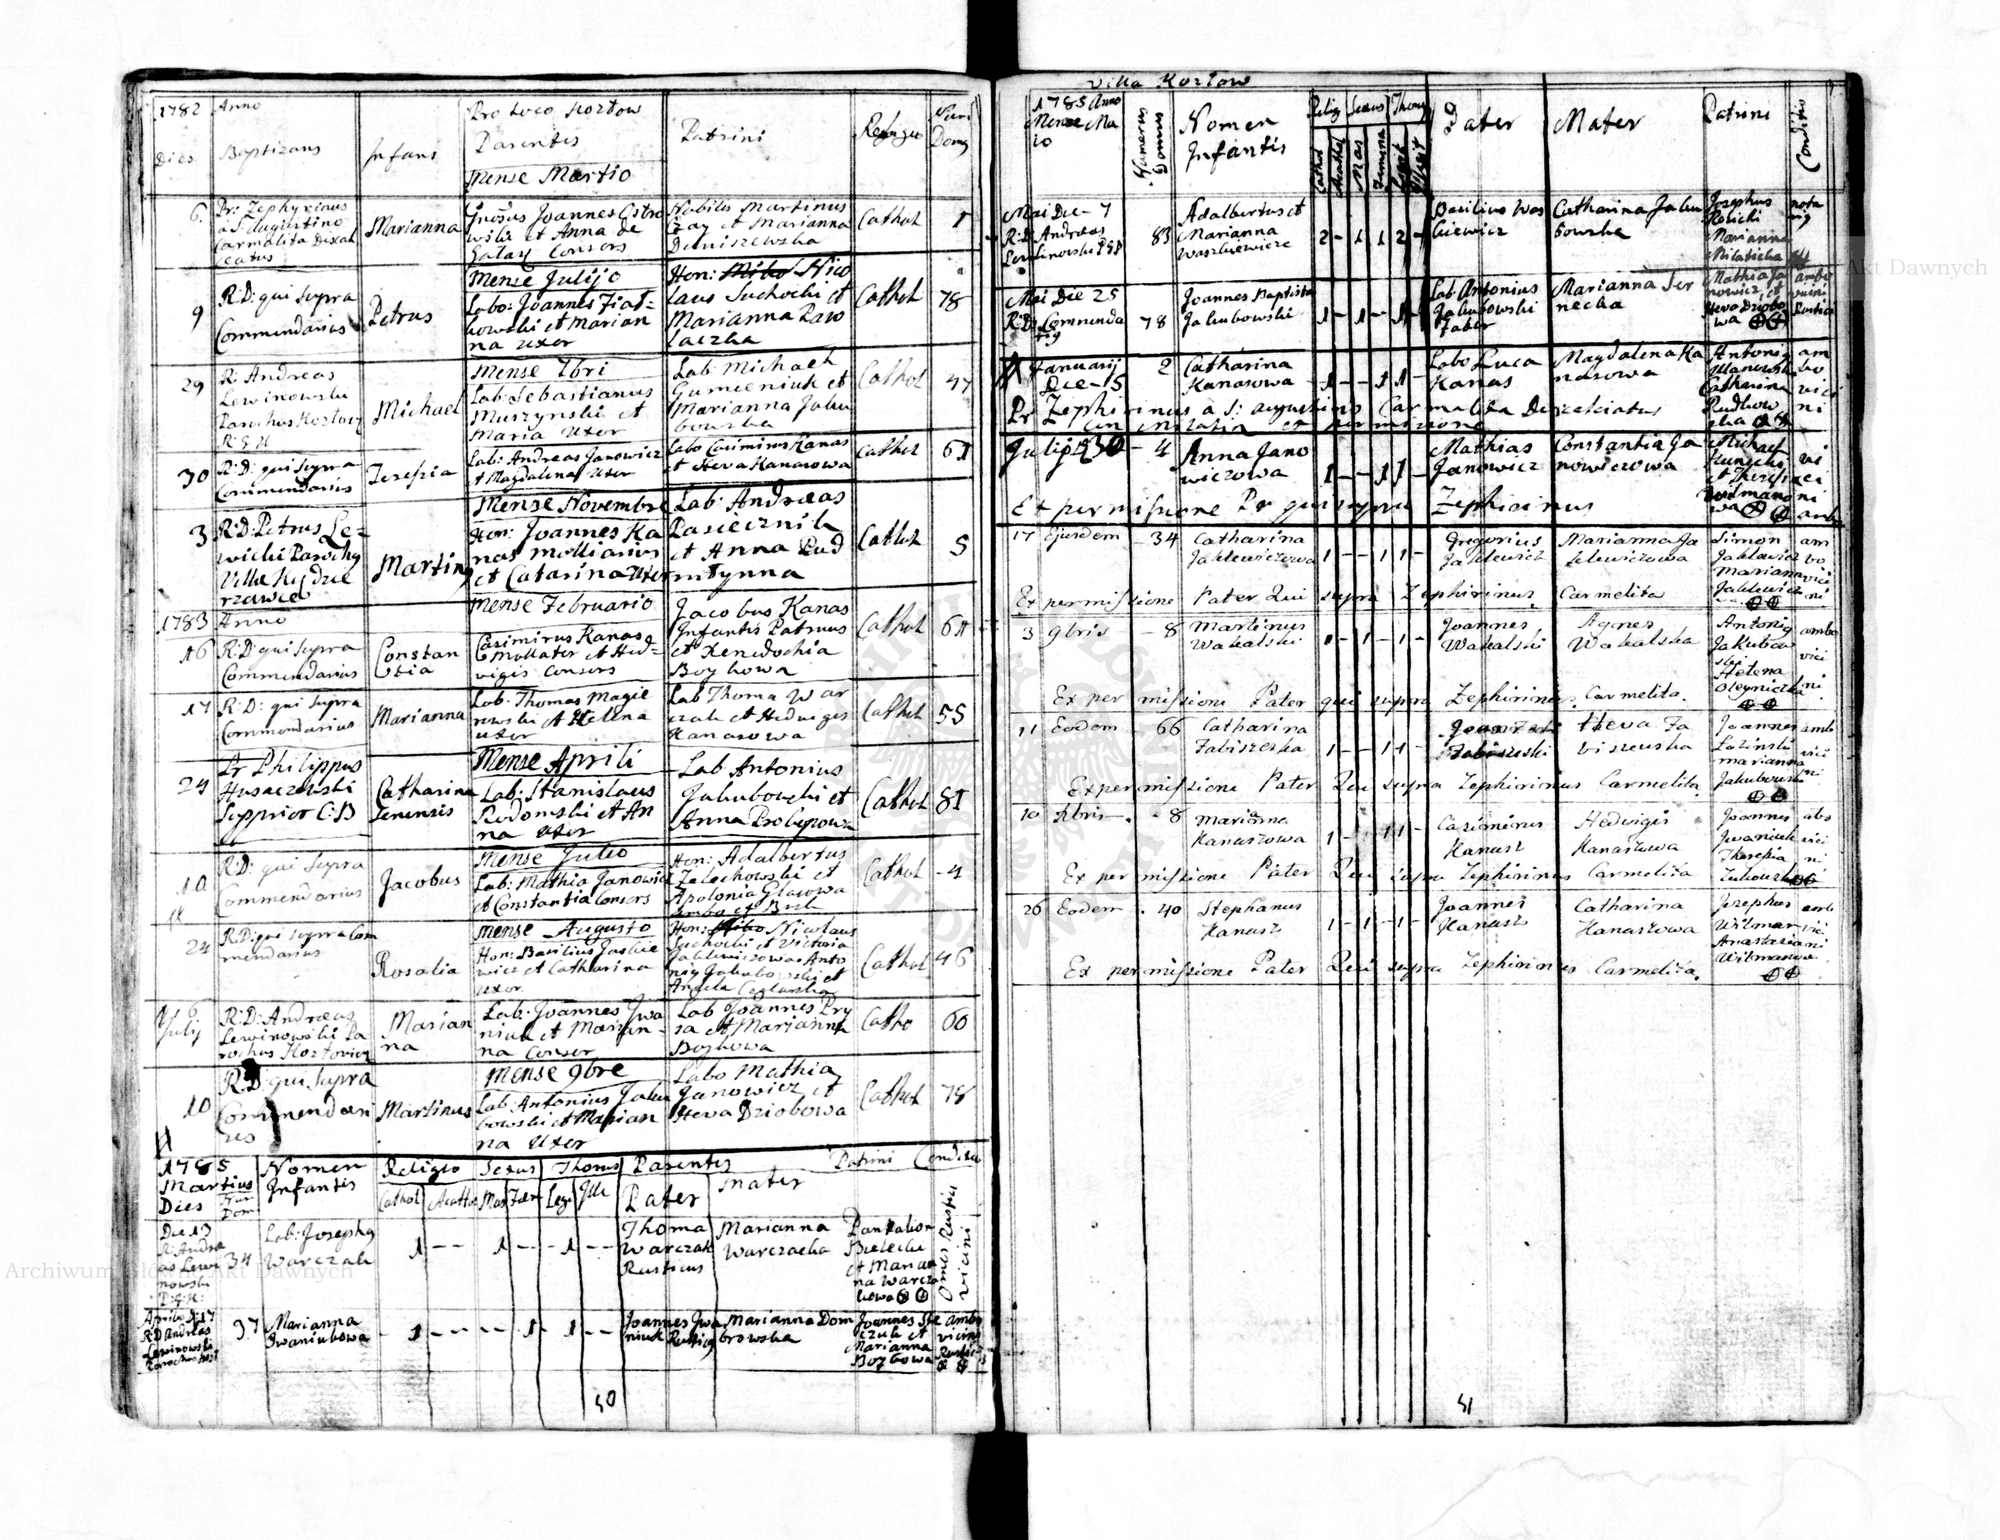 1782 Anno
Dies
Baptizans
Infans
Pro Loco Kozłow
Parentes
Mense Martio
Patrini
Religio
Domg
6.
Pr: Zephyrinus
a S: Augustino
Carmelita Discal
ceatus
Marianna
Joannes Ostro
wski et Anna de
Gałaz Consors
Nobilis Martinus
et Marianna
Cathol
1
Mense Julijo
9
R: D: qui supra
Commendarius
Petrus
Labo: Joannes Fiał-
kowski et Marian
na Uxor
Hon: Nico
laus Suchocki et
Marianna Paw
laczka
Cathol
78
Mense 7bri
29
R: Andreas
Lewinowski
Parochus Kozłow
R: G: K
Michael
Lab: Sebastianus
Muszynski et
Maria Uxor
Lab: Michael
Gumieniuk et
Marianna Jaku
bowska
Cathol
47
30
R: D: qui supra
Commendarius
Teresia
Lab: Andreas Janowicz
et Magdalena Uxor
Labo Casimirus Kanas
et Heva Kanasowa
Cathol
61
Mense Novembre
3
R: D: Petrus Le-
wicki Parochg
Villa
Marting
Hon: Joannes Ka
nas
et Catarina Uxor
Lab: Andreas
Pasiecznik
et Anna Pod
młynna
Cathol
5
1783 Anno
Mense Februario
16
R: D: qui supra
Commendarius
Constan
tia
Casimirus Kanasg
et Hed-
vigis Consors
Jacobus Kanas
Infantis Patruus
et Xenedochia
Boykowa
Cathol
61
17
R: D: qui supra
Commendarius
Marianna
Lab: Thomas Magie
rowski et Helena
Uxor
Lab Thoma War
czak et Hedviges
Kanasowa
Cathol
55
Mense Aprili
24
Pr Philippus
Husaczewski
Supprior C: B
Catharina
Senensis
Lab: Stanislaus
Rudowski et An
na Uxor
Lab Antonius
Jakubowski et
Anna
Cathol
81
Mense Julio
10
R: D: qui supra
Commendarius
Jacobus
Lab: Mathia Janowicz
et Constantia Consors
Hon: Adalbertus
Zelechowski et
Apolonia Glacowa
Cathol
4
Mense Augusto
24
R: D: qui supra Com
mendarius
Rosalia
Hon: Basilius Jaskie
wicz et Catharina
Uxor
Hon: Nicolaus
Suchocki et Victoria
Jaklewiczowa Anto
nig Jakubowski et
Angela
Cathol
46
6
Julij
R: D: Andreas
Lewinowski Pa
rochus Kozłovien
Marian
na
Lab: Joannes Iwa
niuk et Marian-
na Consor
Lab Joannes Pry
sa et Marianna
Boykowa
Catho
60
Mense 9bre
10
R: D: qui supra
Commendari
us
Martinus
Lab: Antonius Jaku
bowski et Marian
na Uxor
Labo Mathia
Janowicz et
Heva Dziobowa
Cathol
78
1785
Martius
Dies
Num
Dom
Nomen
Infantis
Religio Sexus Thorus Parentes Patrini Conditio
Cathol Acathol Mas Faem Legi Ille Pater Mater
Die 13
R: Andre
as Lewi
nowski
P: G: K:
34
Lab: Josephg
Warczak
1 - - 1 - - 1 - -
Thoma
Warczak
Rusticus
Marianna
Warczacka
Pantalion
Bielecki
et Marian
na Warcza
kowa
Omes Rustici
vicini
Aprilis D: 17
R: D Andreas
Lewinowski
37
Marianna
Iwaniukowa
- 1 - - - - 1 - 1 - -
Joannes Iwa
niuk Rusticg
Marianna Dom
browska
Joannes Ste
czuk et
Marianna
Boykowa
ambo
vicini
Rustici
50
Villa Kozłow
1785 Anno
Mense Ma
io
Numerus
Domus
Nomen
Infantis
Relig Sexus Thorg
Cathol
Acathol
Mas
Femina
Legit
Illegit
Pater
Mater
Patrini
Conditio
Mai Die 7
R: D: Andreas
Lewinowski P G K
83
Adalbertus et
Marianna
Waszkiewicze
2 - 1 1 2 -
Basilius Was
kiewicz
Catharina Jaku
bowska
Josephus
Rolicki
Marianna
Milaticka
nota
rig
Mai Die 25
R: D: Commenda
rig
78
Joannes Baptista
Jakubowski
1 - 1 - 1 -
Lab Antonius
Jakubowski
Faber
Marianna Ser
necka
Mathia Ja
nowicz et
Heva Dziobo
wa
ambo
vicini
Rustici
Januarij
Die - 15
2
Catharina
Kanasowa
1 - - 1 1 -
Labo Luca
Kanas
Magdalena Ka
nasowa
Antonig
Ulanowski
Catharina
Rudkow
ska
am
bo
vici
ni
Pr Zephirinus a S: Augustinis Carmelita Discalciatus
et permissione
Julij 30 - 4
Anna Jano
wiczowa
1 - - 1 1 -
Mathias
Janowicz
Constantia Ja
nowiczowa
Michael
et Theresia
Wilmano
wa
vi
ci
ni
ambo
Ex permissione Pr qui supra Zephirinus
17 Ejusdem - 34
Catharina
Jaklewiczowa
1 - - 1 1 -
Gregorius
Jaklewicz
Marianna Ja
klewiczowa
Simon
Jaklewicz
Mariann
Jaklewicz
am
bo
vici
ni
Ex permissione Pater Qui supra Zephirinus Carmelita
3 9bris - 8
Martinus
Wakalski
1 - 1 - 1 -
Joannes
Wakalski
Agnes
Wakalska
Antonig
Jakubow
ski
Helena
Oleyniczka
ambo
vici
ni
Ex permissione Pater qui supra Zephirinus Carmelita.
11 Eodem 66
Catharina
Zabiszeska
1 - - 1 1 -
Zabiszeski
Heva Za
biszewska
Joannes
Łozinski
Marianna
Jakubowska
amb
vici
ni
Ex permissione Pater Qui supra Zephirinus Carmelita.
10 Xbris - 8
Marianna
Kanaszowa
1 - - 1 1 -
Casimirus
Kanasz
Hedvigis
Kanaszowa
Joannes
Iwaniuk
Theresia
Zukowska
abo
vici
ni
Ex permissione Pater Qui supra Zephirinus Carmelita
26 Eodem . 40
Stephanus
Kanasz
1 - 1 - 1 -
Joannes
Kanasz
Catharina
Kanaszowa
Josephus
Wilman
Anastasia
Wilmanowa
amb
vici
ni
Ex permissione Pater Qui supra Zephirinus Carmelita.
51
Archiwum Główne Akt Dawnych